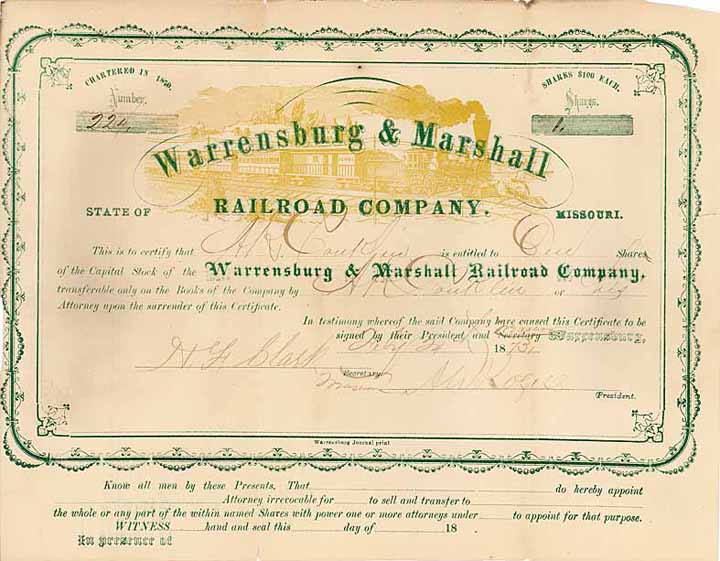 CHARTERED IN 1870.
SHARES $100 EACH.
Number.
Shares.
224,
1,
Warrensburg & Marshall
RAILROAD COMPANY.
STATE OF
MISSOURI.
This is to certify that A. R. Conklin is entitled to One Shares
of the Capital Stock of the Warrensburg & Marshall Railroad Company,
transferable only on the Books of the Company by A R Conklin or his
Attorney upon the surrender of this Certificate.
In testimony whereof the said Company have caused this Certificate to be
signed by their President and Secretary Warrensburg,
18
H F Clark
Secretary.
President.
Warrensburg Journal print
Know all men by these Presents, That do hereby appoint
Attorney irrevocable for to sell and transfer to
the whole or any part of the within named Shares with power one or more attorneys under to appoint for that purpose.
WITNESS hand and seal this day of 18
In presence of